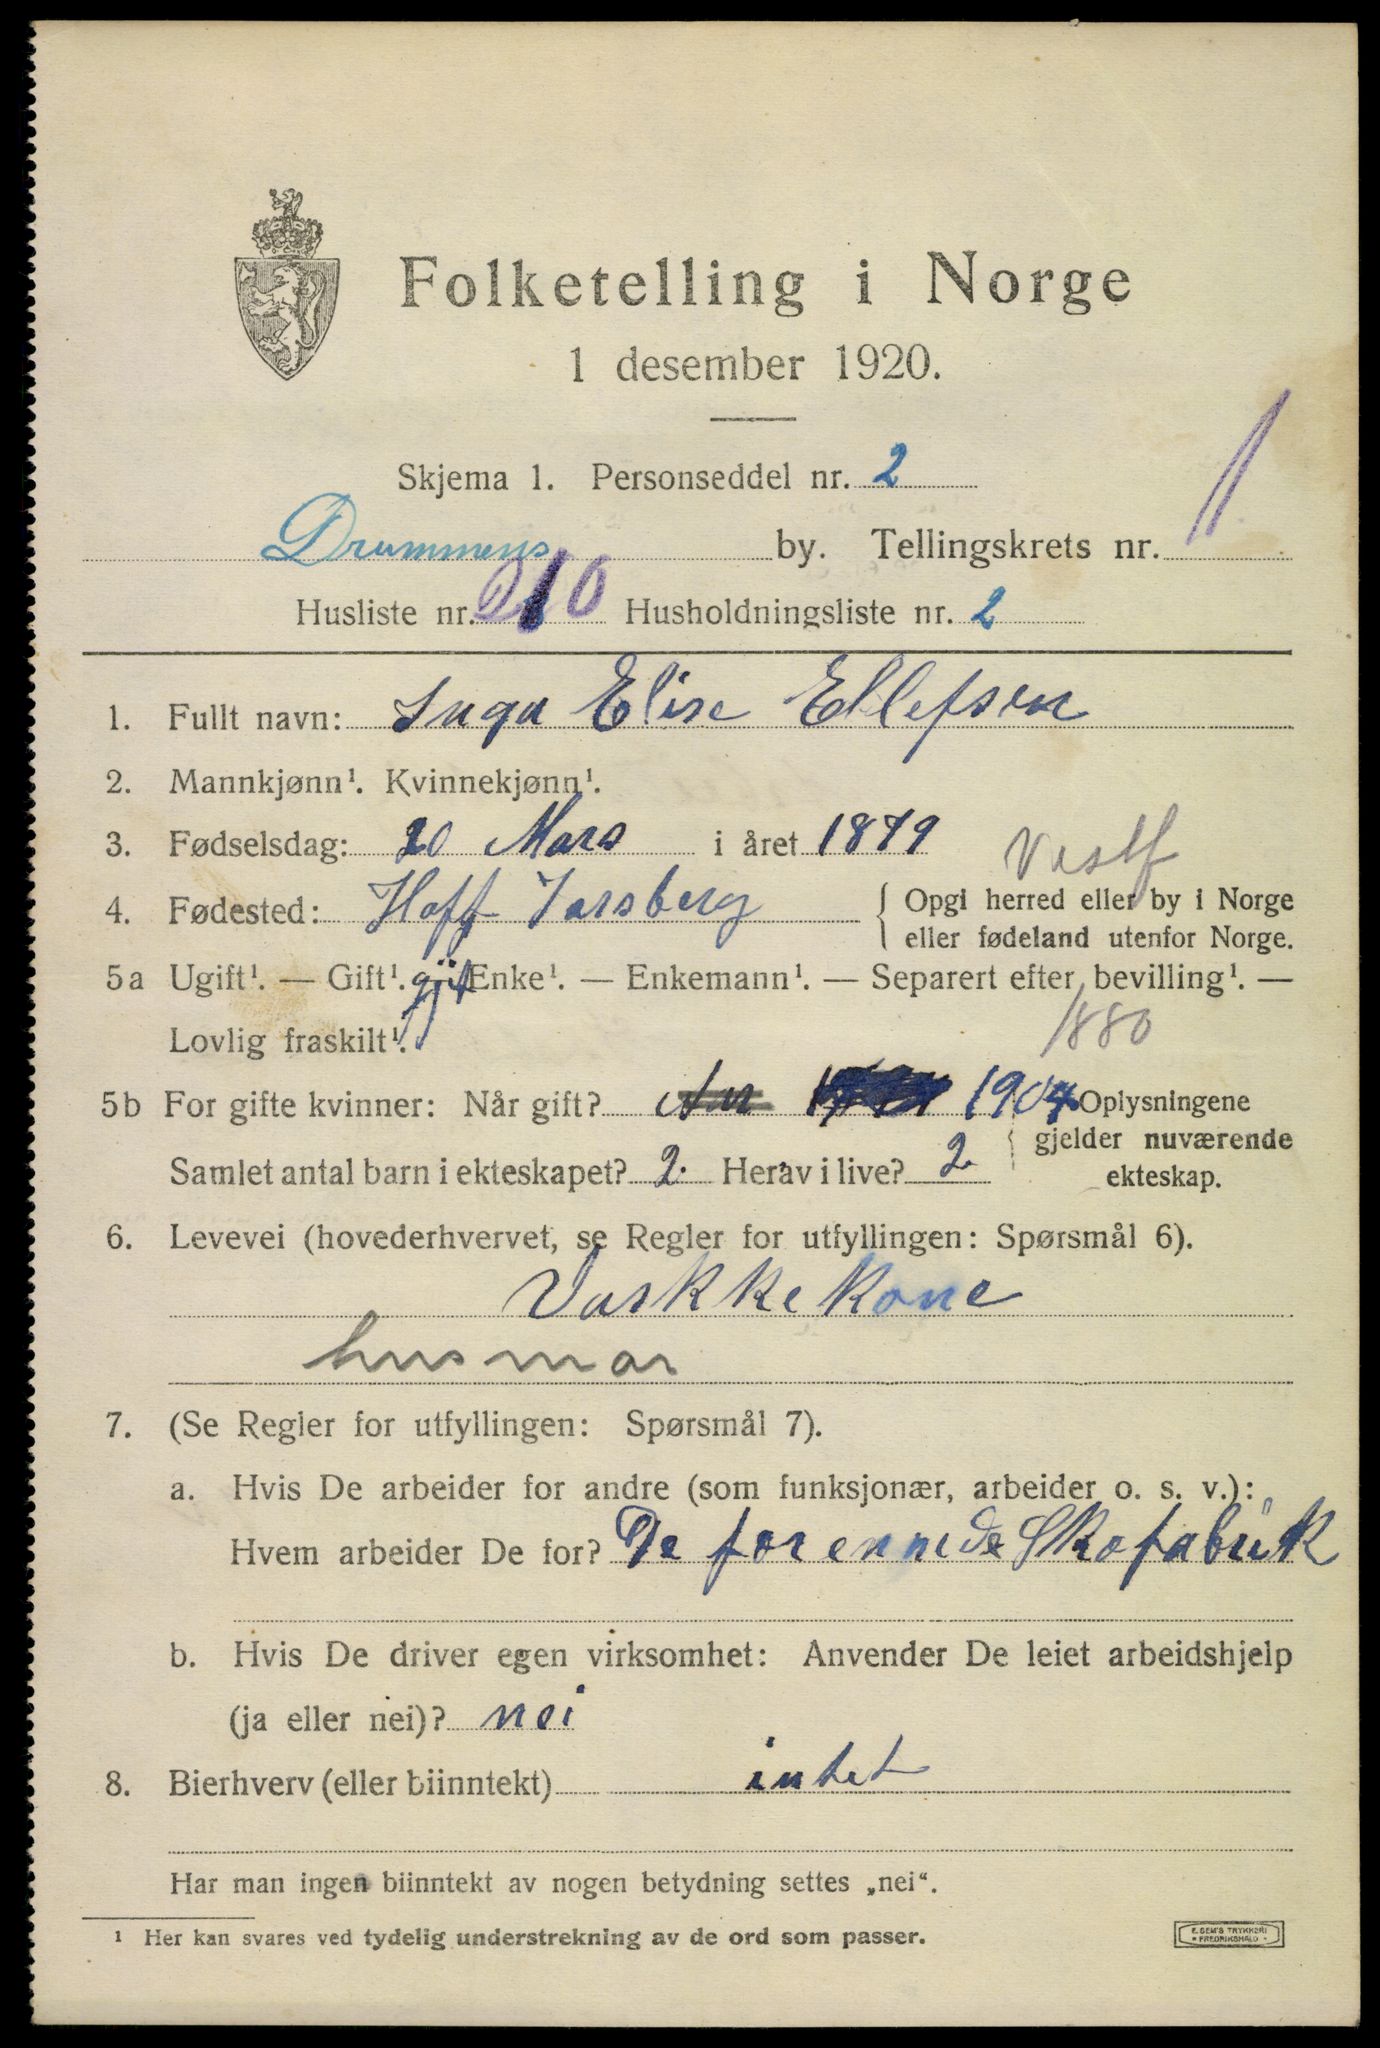 Folketelling i Norge
1 desember 1920.
Skjema 1. Personseddel nr. 2
Drammens by. Tellingskrets nr. 1
Husliste nr. 210 Husholdningsliste nr. 2
1. Fullt navn: Inga Elise Ellefsen
2. Mannkjønn¹. Kvinnekjønn¹.
3. Fødselsdag: 20 Mars i året 1879
Vestf
4. Fødested: Hoff Jarsberg { Opgi herred eller by i Norge
eller fødeland utenfor Norge.
5a Ugift¹. — Gift¹. gift Enke¹. — Enkemann¹. — Separert efter bevilling¹. —
Lovlig fraskilt¹. 1880
5b For gifte kvinner: Når gift? 1904 Oplysningene
gjelder nuværende
Samlet antal barn i ekteskapet? 2. Herav i live? 2 ekteskap.
6. Levevei (hovederhvervet, se Regler for utfyllingen: Spørsmål 6).
Vaskkekone
husmor
7. (Se Regler for utfyllingen: Spørsmål 7).
a. Hvis De arbeider for andre (som funksjonær, arbeider o. s. v.):
Hvem arbeider De for? De forennede Skofabrik
b. Hvis De driver egen virksomhet: Anvender De leiet arbeidshjelp
(ja eller nei)? nei
8. Bierhverv (eller biinntekt) intet
Har man ingen biinntekt av nogen betydning settes „nei“.
¹ Her kan svares ved tydelig understrekning av de ord som passer.
E. SEM'S TRYKKERI
FREDRIKSHALD